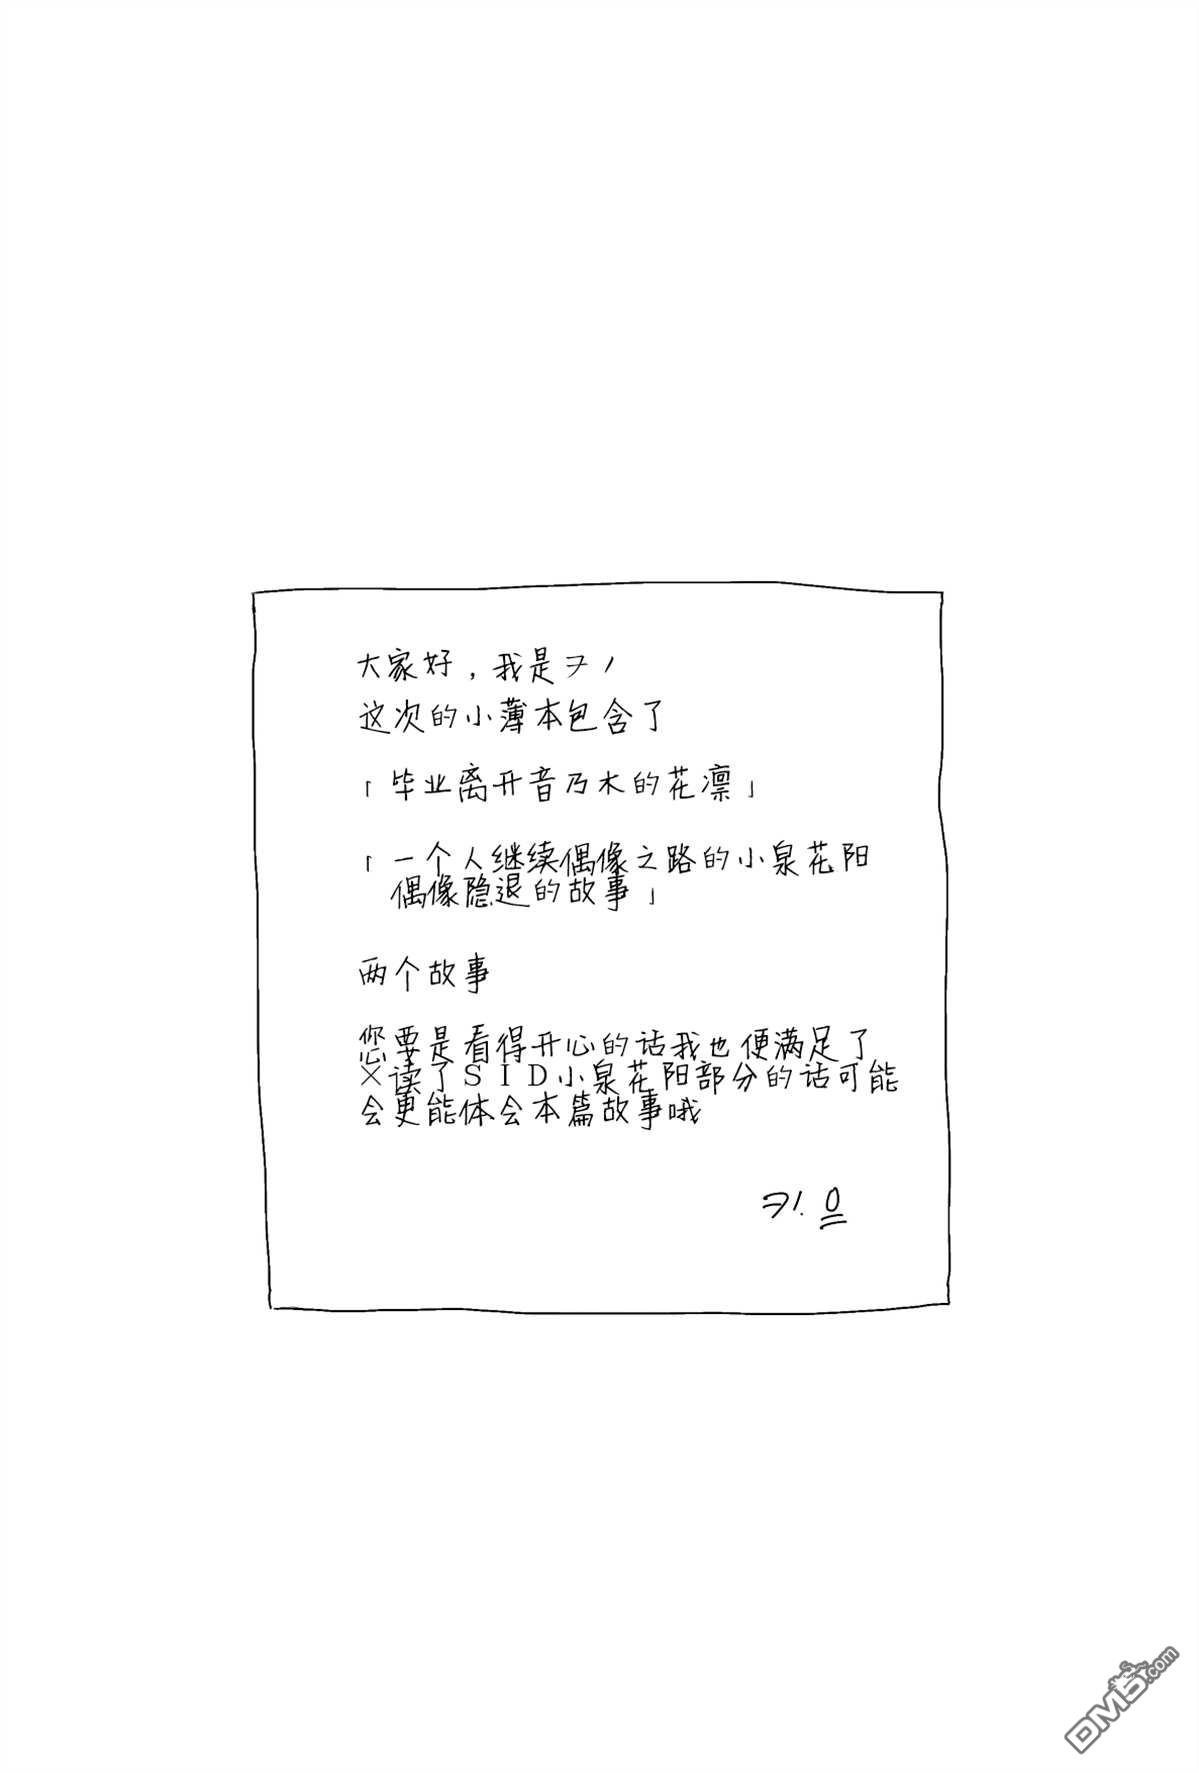 大家好，我是ヲノ
这次的小薄本包含了
「毕业离开音乃木的花凛」
「一个人继续偶像之路的小泉花阳
偶像隐退的故事」
两个故事
您要是看得开心的话我也便满足了
×读了SID小泉花阳部分的话可能
会更能体会本篇故事哦
ヲノ.
DM5.com